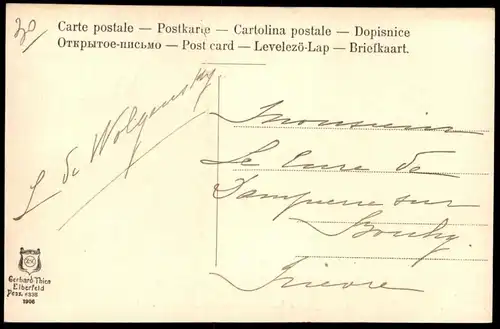 30
Carte postale — Postkarte — Cartolina postale — Dopisnice
Открытое-письмо — Post card — Levelező-Lap — Briefkaart.
L de Wolgensky
Monsieur
Le Cure de
Dampierre sur
Bouhy
Nievre
Gerhard Thien
Elberfeld
1906